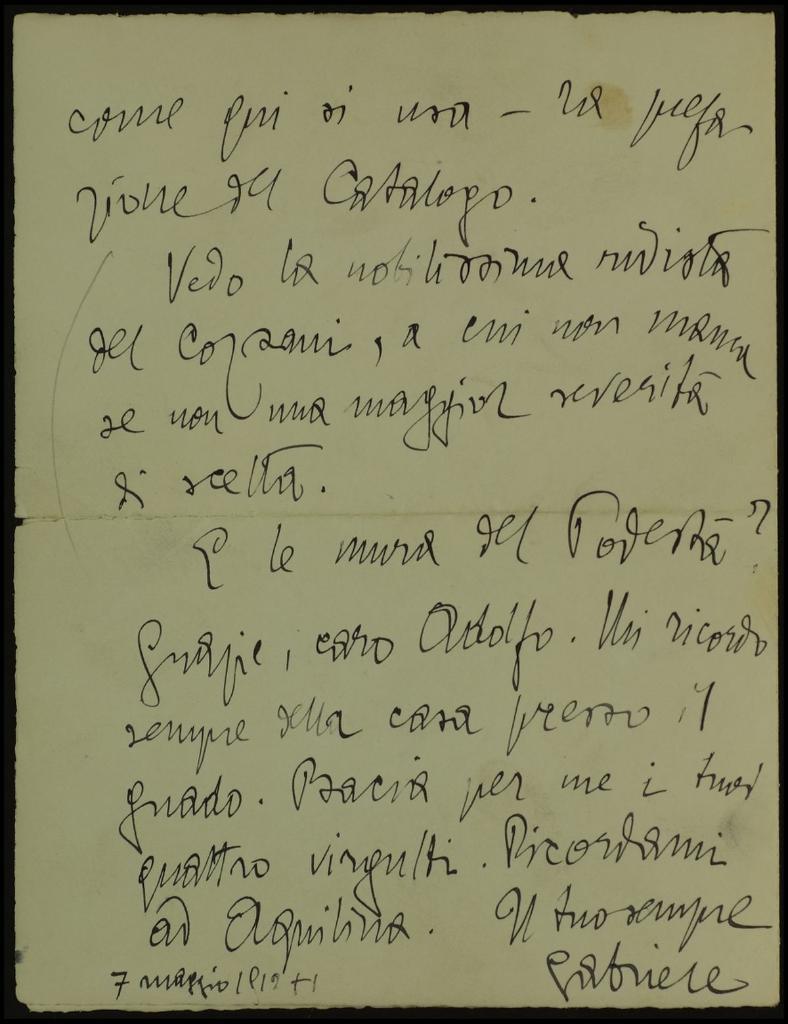 come qui si usa – la prefa
zione del Catalogo.
Vedo la nobilissima rivista
del Cozzani, a cui non manca
se non una maggior severità
di scelta.
E le mura del Podestà?
Grazie, caro Adolfo. Mi ricordo
sempre della casa presso il
guado. Bacia per me i tuoi
quattro virgulti. Ricordami
ad Aquilina. Il tuo sempre
Gabriele
7 maggio